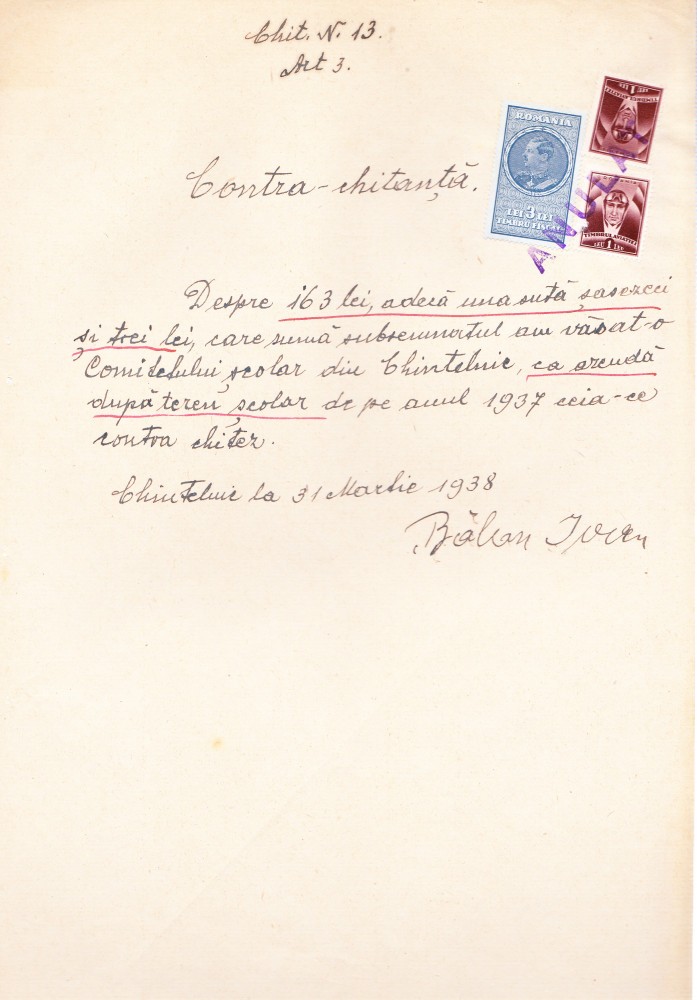 Chit. N. 13.
Art 3.
ROMANIA
LEI 3 LEI
TIMBRU FISCAL
TIMBRUL AVIATIEI
LEU 1 LEU
TIMBRUL AVIATIEI
LEU 1 LEU
ANULAT
Contra-chitanță.
Despre 163 lei, adecă una sută șasezeci
și trei lei, care sumă subsemnatul am vărsat-o
Comitetului școlar din Chintelnic, ca arendă
după teren școlar de pe anul 1937 ceia-ce
contra chitez.
Chintelnic la 31 Martie 1938
Bălan Ioan